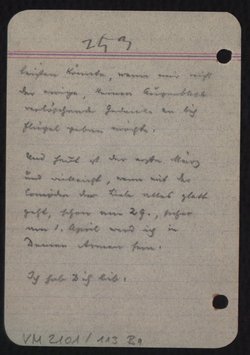 leisten könnte, wenn mir nicht
der ewige, keinen Augenblick
verlöschende Gedanke an Dich
Flügel geben möchte.
Und heut ist der erste März
und vielleicht, wenn mit der
Comödie der Liebe alles glatt
geht, schon am 29., sicher
am 1. April werd ich in
Deinen Armen sein.
Ich hab Dich lieb.
VM 2101/113 Ba